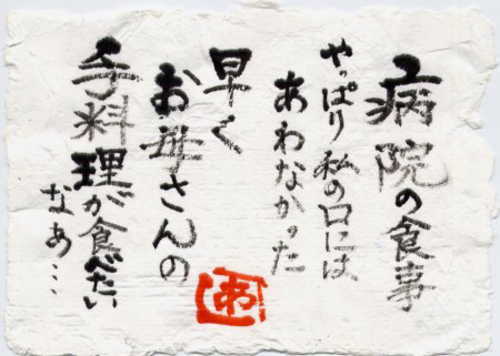 病院の食事
やっぱり私の口には
あわなかった
早く
お母さんの
手料理が食べたい
なあ…